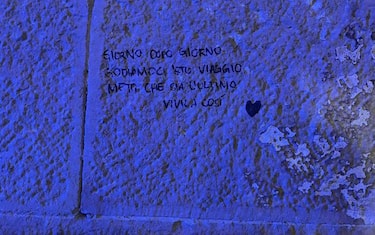 GIORNO DOPO GIORNO
GODIAMOCI 'STO VIAGGIO
METTI CHE SIA L'ULTIMO
VIVILA COSÌ